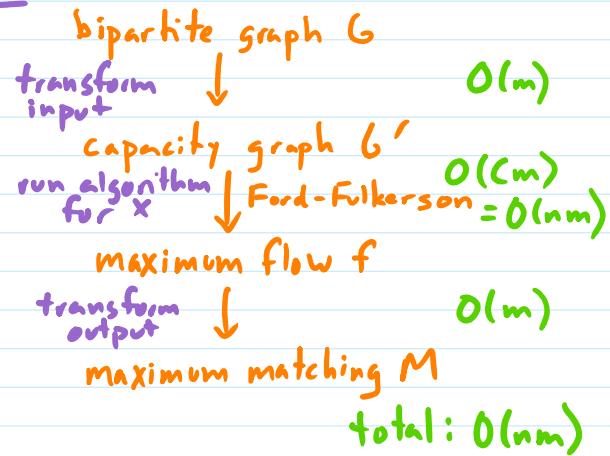 bipartite graph G
transform
input
O(m)
capacity graph G'
run algorithm
for X
Ford-Fulkerson
O(Cm)
= O(nm)
maximum flow f
transform
output
O(m)
maximum matching M
total: O(nm)